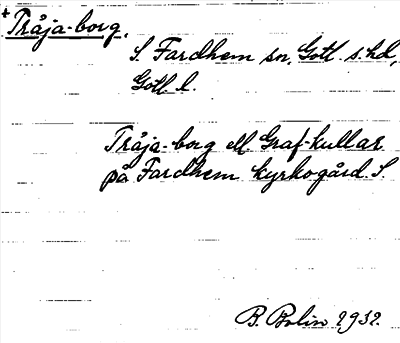 + Tråja-borg.
S. Fardhem sn, Gotl. s. hd,
Gotl. l.
Tråja-borg ell Graf-kullar
på Fardhem kyrkogård. S.
B. Bolin 1932.